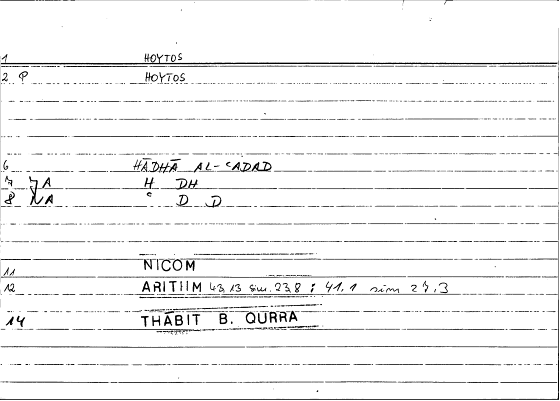 1 HOYTOS
2 P HOYTOS
6 HĀDHĀ AL-ʿADAD
7 7A H DH
8 NA ʿ D D
11 NICOM
12 ARITIIM 43,13 sim. 23,8 ; 41,1 sim 27,3
14 THĀBIT B. QURRA